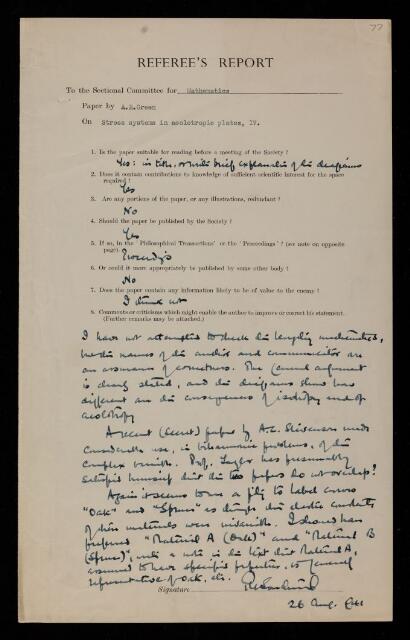 77
REFEREE'S REPORT
To the Sectional Committee for Mathematics
Paper by A.E.Green
On Stress systems in aeolotropic plates, IV.
1. Is the paper suitable for reading before a meeting of the Society ?
Yes: in title, or with brief explanation of the diagrams
2. Does it contain contributions to knowledge of sufficient scientific interest for the space
required ?
Yes
3. Are any portions of the paper, or any illustrations, redundant ?
No
4. Should the paper be published by the Society ?
Yes
5. If so, in the ' Philosophical Transactions' or the ' Proceedings' ? (see note on opposite
page).
Proceedings
6. Or could it more appropriately be published by some other body ?
No
7. Does the paper contain any information likely to be of value to the enemy ?
I think not
8. Comments or criticisms which might enable the author to improve or correct his statement.
(Further remarks may be attached.)
I have not attempted to check the lengthy mathematics,
the names of the author and communicator are
an assurance of correctness. The general argument
is clearly stated, and the diagrams show how
different are the consequences of isotropy and of
aeolotropy
A recent (Secret) paper by A.C. Stevenson made
considerable use, in biharmonic problems, of the
complex variable. Prof. Taylor has presumably
satisfied himself that the two papers do not overlap?
Again it seems to me a pity to label curves
"Oak" and "Spruce" as though the elastic constants
of these materials were invariable. I should have
preferred "Material A (Oak)" and "Material B
(Spruce)", with a note in the text that Material A,
assumed to have specified properties, is generally
representative of oak, etc.
Signature
26 Aug. 1941